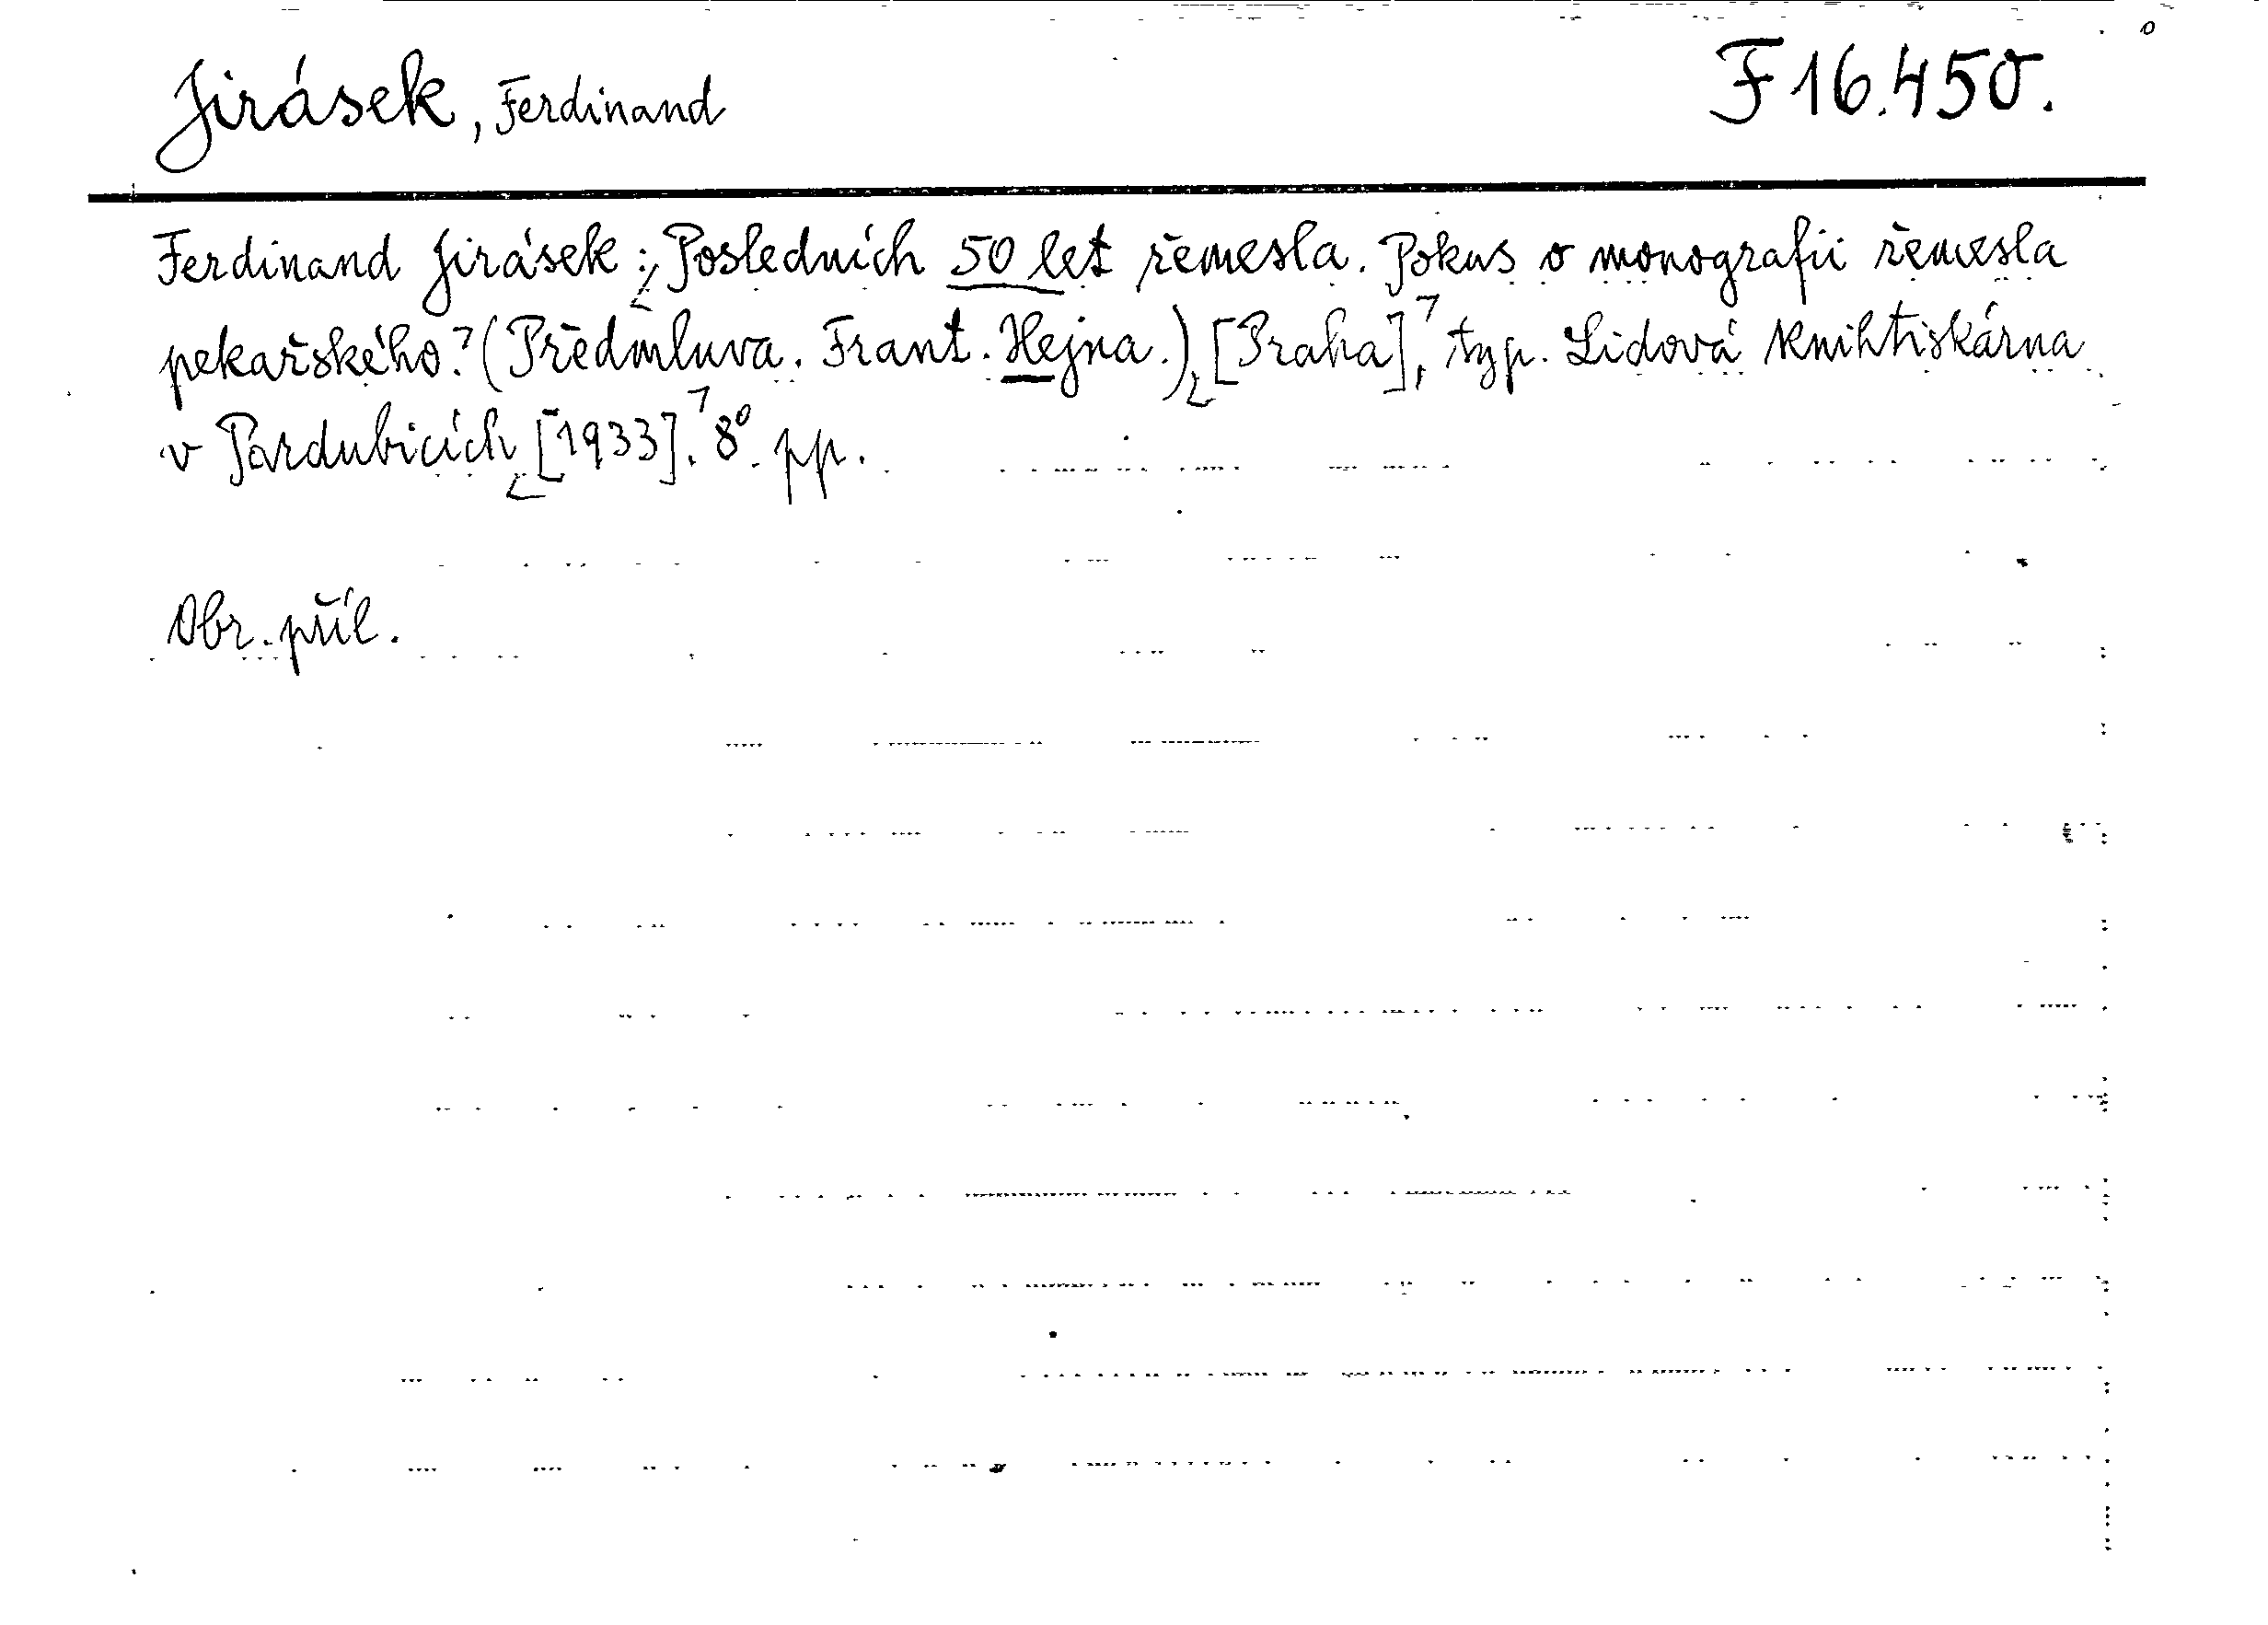 Jirásek, Ferdinand F 16.450.
Ferdinand Jirásek: Posledních 50 let řemesla. Pokus o monografii řemesla
pekařského. (Předmluva. Frant. Hejna.) [Praha], typ. Lidová knihtiskárna
v Pardubicích [1933]. 8°. pp.
Obr. příl.